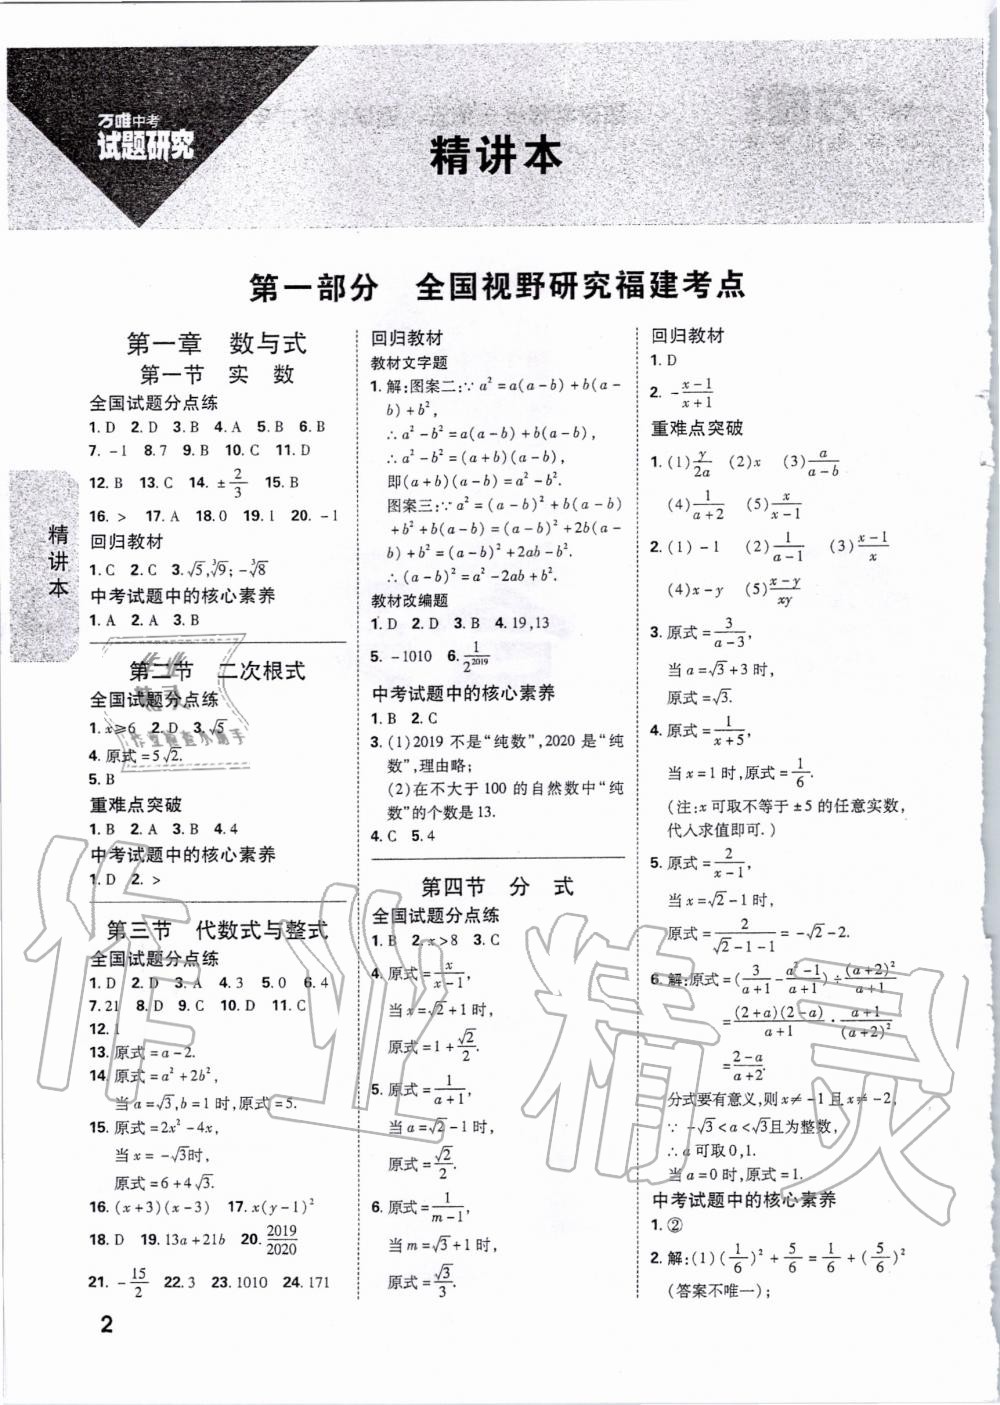 万唯中考
试题研究
精讲本
第一部分 全国视野研究福建考点
精讲本
第一章 数与式
第一节 实 数
全国试题分点练
1. D 2. D 3. B 4. A 5. B 6. B
7. -1 8.7 9. B 10. C 11. D
12. B 13. C 14. ±2/3 15. B
16. > 17. A 18.0 19.1 20. -1
回归教材
1. C 2. C 3. √5,∛9; -∛8
中考试题中的核心素养
1. A 2. A 3. B
第二节 二次根式
全国试题分点练
1. x≥6 2. D 3. √5
4. 原式=5√2.
5. B
重难点突破
1. B 2. A 3. B 4.4
中考试题中的核心素养
1. D 2. >
第三节 代数式与整式
全国试题分点练
1. D 2. D 3. A 4.3 5.0 6.4
7.21 8. D 9. C 10. D 11. C
12.1
13. 原式=a-2.
14. 原式=a²+2b²,
当a=√3,b=1时,原式=5.
15. 原式=2x²-4x,
当x=-√3时,
原式=6+4√3.
16. (x+3)(x-3) 17. x(y-1)²
18. D 19. 13a+21b 20. 2019/2020
21. -15/2 22.3 23.1010 24.171
2
回归教材
教材文字题
1. 解:图案二:∵a²=a(a-b)+b(a-
b)+b²,
∴a²-b²=a(a-b)+b(a-b),
∴a²-b²=(a+b)(a-b),
即(a+b)(a-b)=a²-b².
图案三:∵a²=(a-b)²+b(a-b)
+b²+b(a-b)=(a-b)²+2b(a-
b)+b²=(a-b)²+2ab-b².
∴(a-b)²=a²-2ab+b².
教材改编题
1. D 2. D 3. B 4.19,13
5. -1010 6. 1/2²⁰¹⁹
中考试题中的核心素养
1. B 2. C
3. (1)2019不是“纯数”,2020是“纯
数”,理由略;
(2)在不大于100的自然数中“纯
数”的个数是13.
4. C 5.4
第四节 分 式
全国试题分点练
1. B 2. x>8 3. C
4. 原式=x/(x-1),
当x=√2+1时,
原式=1+√2/2.
5. 原式=1/(a+1),
当a=√2-1时,
原式=√2/2.
6. 原式=1/(m-1),
当m=√3+1时,
原式=√3/3.
回归教材
1. D
2. -(x-1)/(x+1)
重难点突破
1. (1)y/2a (2)x (3)a/(a-b)
(4)1/(a+2) (5)x/(x-1)
2. (1)-1 (2)1/(a-1) (3)(x-1)/x
(4)x-y (5)(x-y)/xy
3. 原式=3/(a-3),
当a=√3+3时,
原式=√3.
4. 原式=1/(x+5),
当x=1时,原式=1/6.
(注:x可取不等于±5的任意实数,
代入求值即可.)
5. 原式=2/(x-1),
当x=√2-1时,
原式=2/(√2-1-1)=-√2-2.
6. 解:原式=(3/(a+1)-(a²-1)/(a+1))÷(a+2)²/(a+1)
=(2+a)(2-a)/(a+1)·(a+1)/(a+2)²
=(2-a)/(a+2).
分式要有意义,则x≠-1且x≠-2,
∵-√3<a<√3且为整数,
∴a可取0,1.
当a=0时,原式=1.
中考试题中的核心素养
1. ②
2. 解:(1)(1/6)²+5/6=1/6+(5/6)²
(答案不唯一);
作业精灵